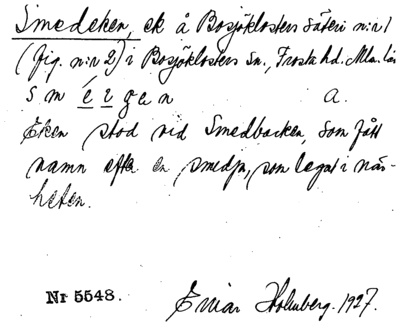 Smedeken, ek å Bosjöklosters säteri n:r 1
(fig. n:r 2) i Bosjöklosters Sn., Frosta hd. Mlm. län
sméigan a.
Eken stod vid Smedbacken, som fått
namn efter en smedja, som legat i när-
heten.
Nr 5548.
Einar Holmberg. 1927.